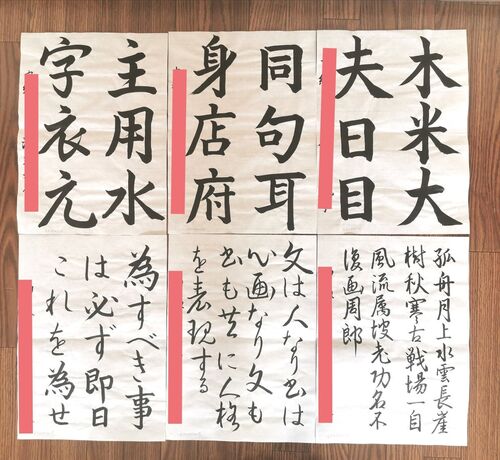 木米大
夫日目
同句耳
身店府
主用水
字衣元
孤舟月上水雲長崖
樹秋寒古戦場一自
風流属坡老功名不
復画周郎
文は人なり書は
心画なり文も
書も共に人格
を表現する
為すべき事
は必ず即日
これを為せ